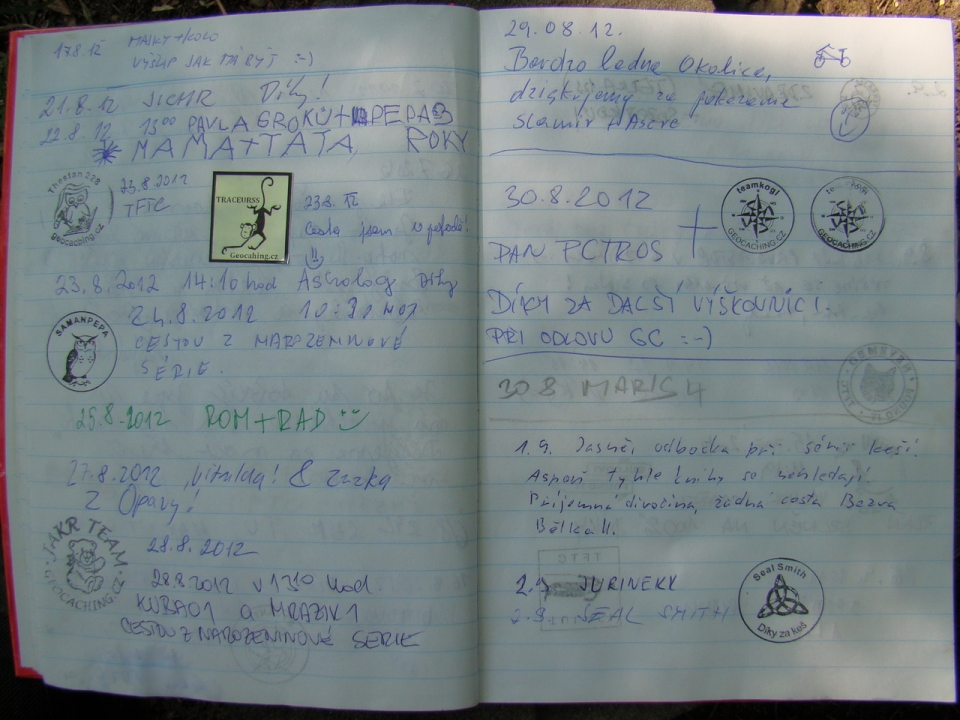 17.8.12 MAJKY+KOLO
VÝŠLAP JAK MÁ BÝT :-)
21.8.12 JICHR Díky!
22.8.12 15:00 PAVLA GROKU+PEPAB
MAMA+TATA, ROKY
Thestan 228
geocaching.cz
23.8.2012
TFTC
TRACEURSS
Geocaching.cz
23.8.12
Cesta jsem v pohodě!
23.8.2012 14:10 hod Astrology Díky
SAMANPEPA
24.8.2012 10:30 HOD
CESTOU Z NAROZENINOVÉ
SÉRIE.
25.8.2012 ROM+RAD
27.8.2012 & zuzka
z Opavy!
JAKR TEAM
GEOCACHING.CZ
28.8.2012
28.8.2012 v 1310 hod.
KUBA01 a MRAZIK1
CESTOU Z NAROZENINOVÉ SERIE
29.08.12.
Bardzo ladna okolica,
dziękujemy za pokazanie
slamir + Ascre
30.8.2012
PAN PETROS +
teamkogi
GEOCACHING.CZ
GEOCACHING.CZ
DÍKY ZA DALŠÍ VÝŠKOVNÍCI.
PŘI ODLOVU GC :-)
30 8 MARIS 4
1.9. Jasně, odbočka při sérii keší!
Aspoň tyhle knihy se nehledají!
Příjemná divočina, žádná cesta Bezva
Bělka II.
TFTC
2.9 JURINEKX
2.9. SEAL SMITH
Seal Smith
Díky za keš